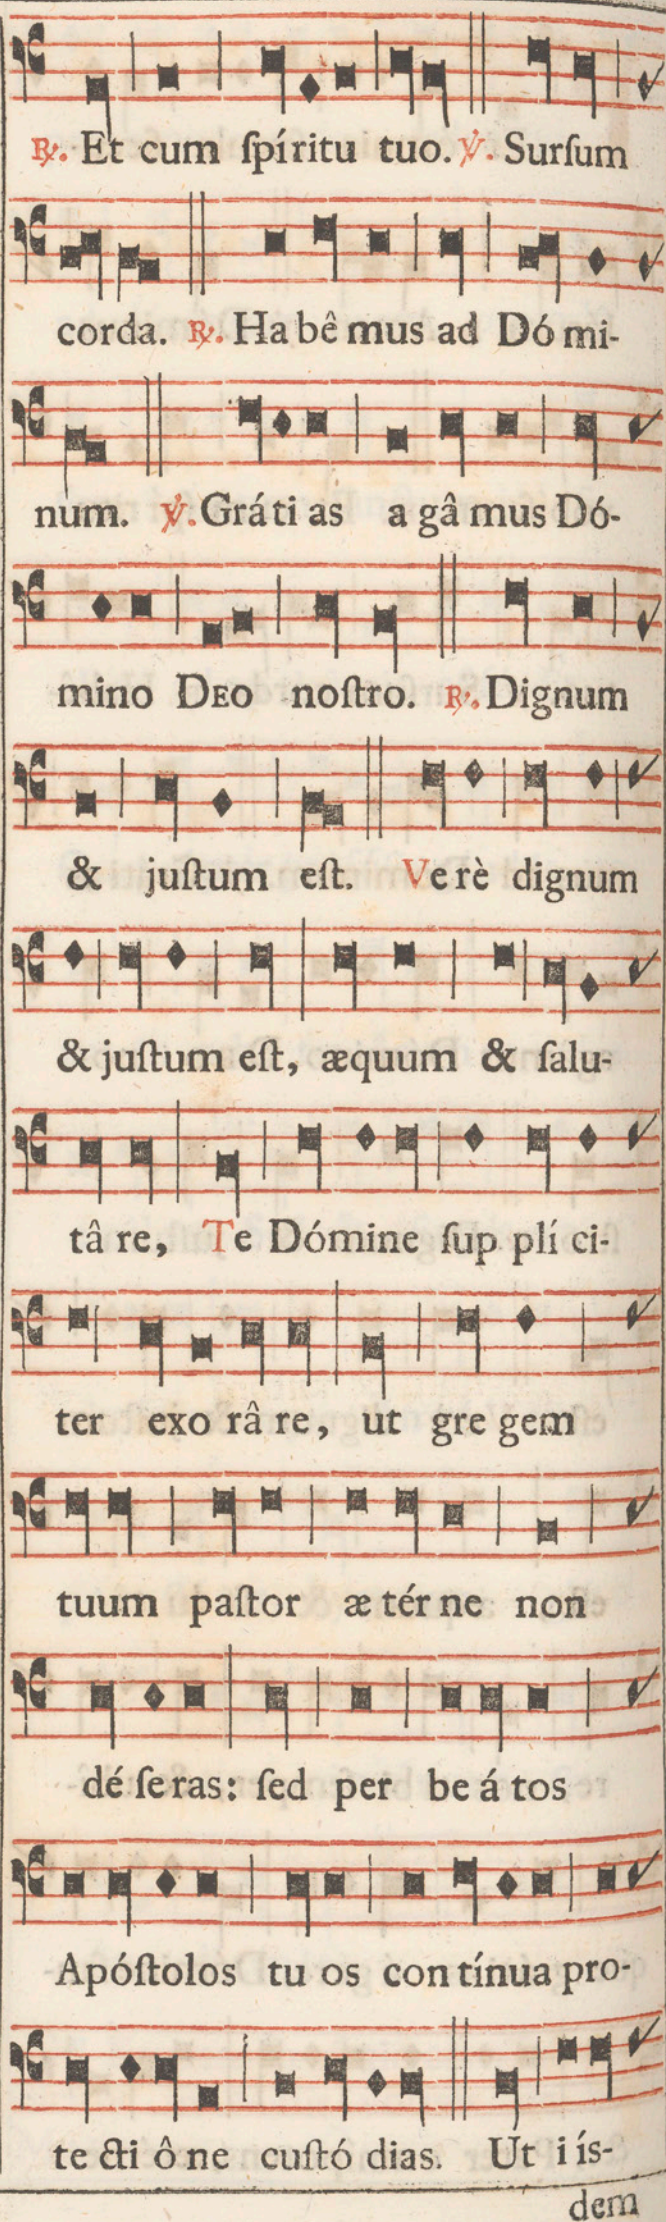 ℟. Et cum ſpíritu tuo. ℣. Surſum
corda. ℟. Habê mus ad Dó mi-
num. ℣. Gráti as a gâ mus Dó-
mino Deo noſtro. ℟. Dignum
& juſtum eſt. Verè dignum
& juſtum eſt, æquum & ſalu-
tâ re, Te Dómine ſup plí ci-
ter exo râ re, ut gre gem
tuum paſtor æ tér ne non
dé ſe ras: ſed per be á tos
Apóſtolos tu os con tínua pro-
te cti ô ne cuſtó dias. Ut i ís-
dem